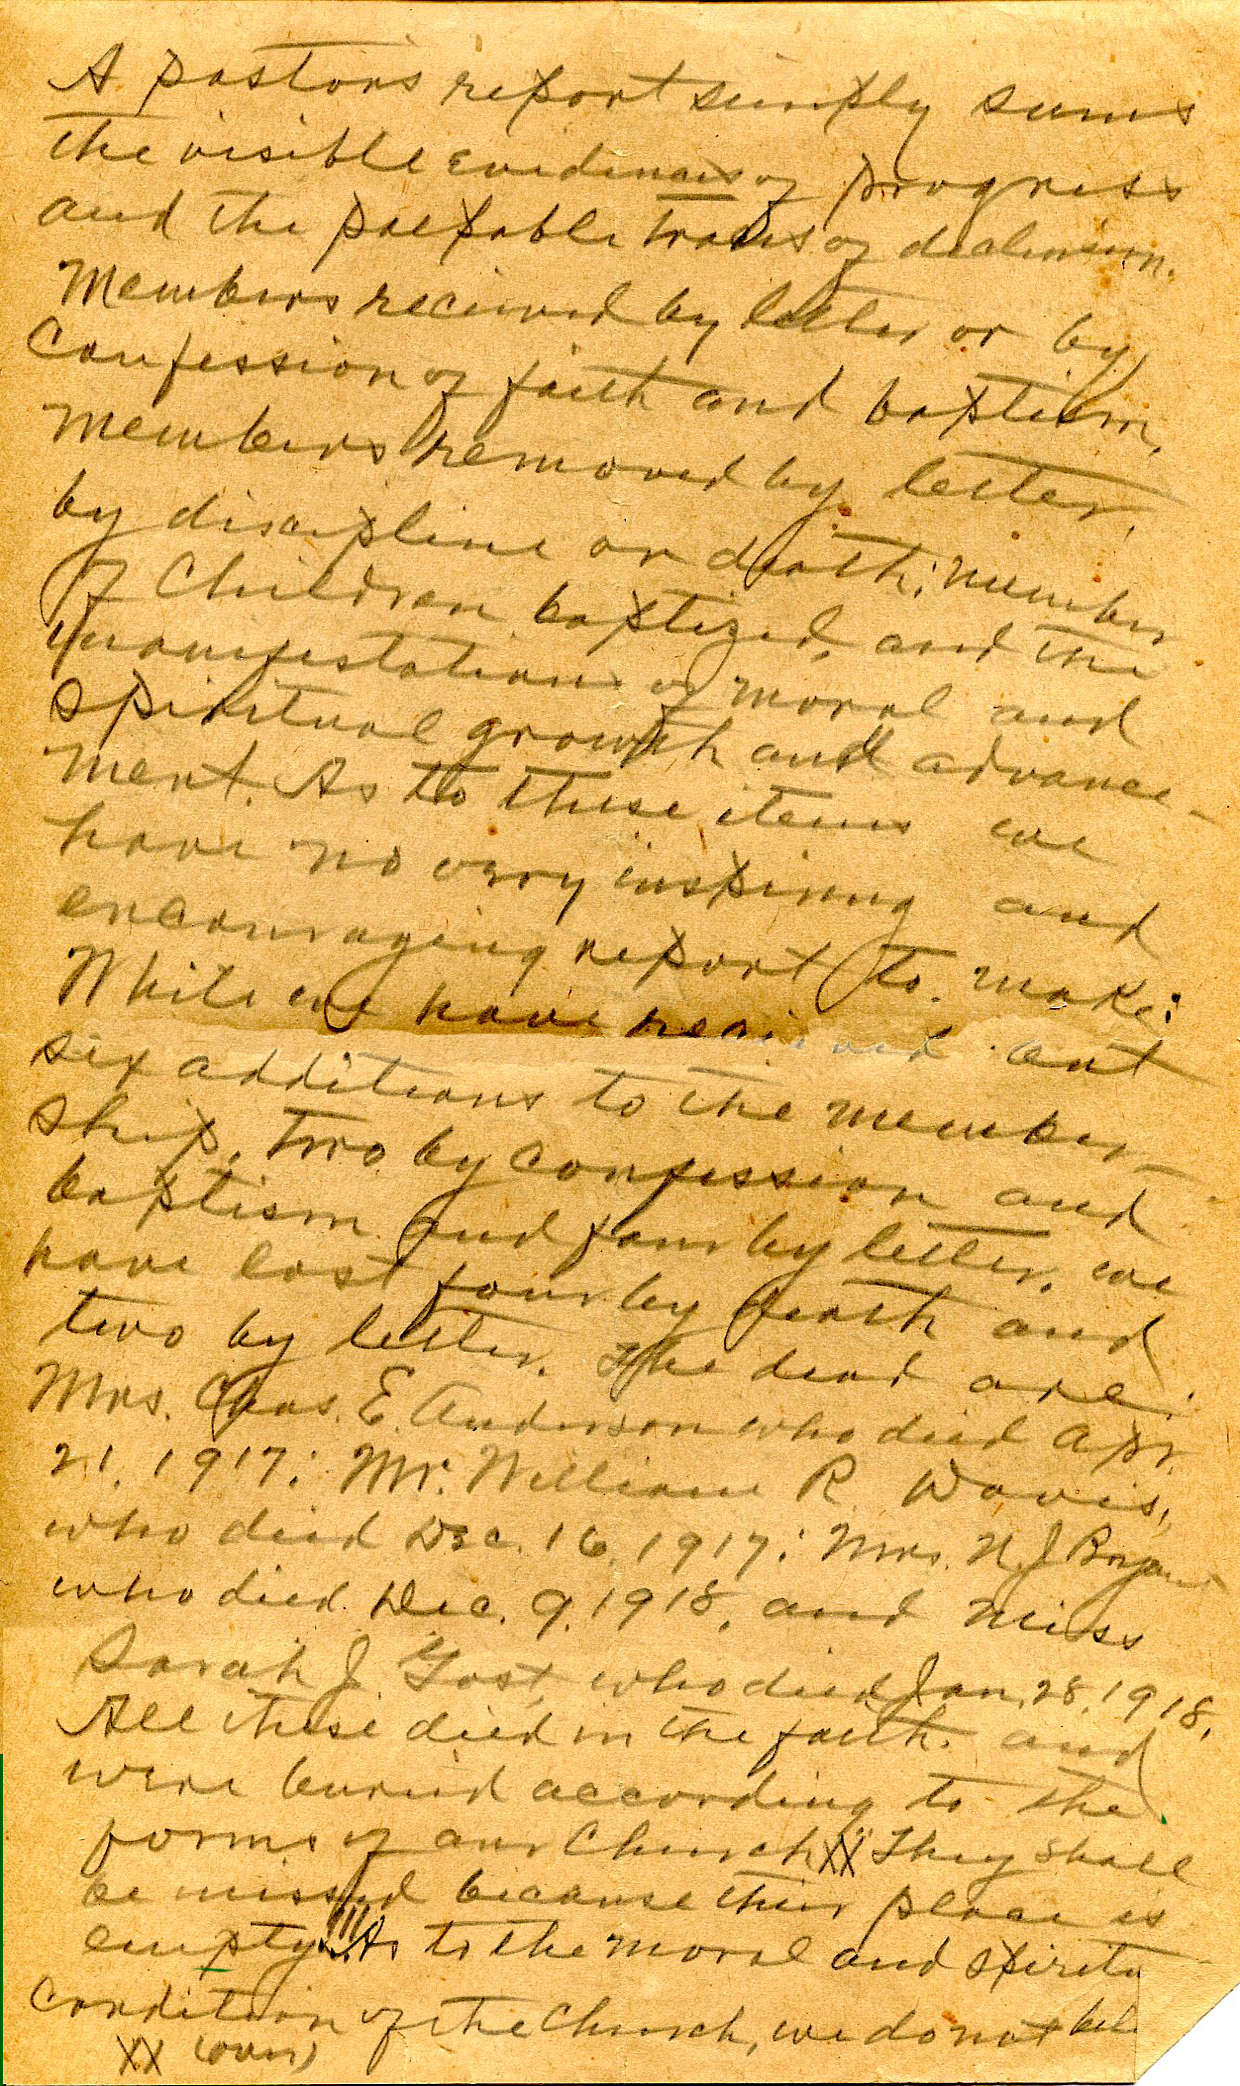 A pastor's report simply sums
the visible evidences of progress
and the palpable traces of declension.
Members received by letter or by
Confession of faith and baptism,
Members removed by letter,
by discipline or death; number
of Children baptized, and the
manifestations of moral and
spiritual growth and advance-
ment. As to these items we
have no very inspiring and
encouraging report to make:
While we have received but
six additions to the member-
ship, two by confession and
baptism and four by letter, we
have lost four by death and
two by letter. The dead are:
Mrs. Chas. E. Anderson who died Apr.
21, 1917; Mr. William R. Davis,
who died Dec. 16, 1917; Mrs. N. J. Bryan
who died Dec. 9, 1918, and Miss
Sarah J. Yost, who died Jan. 28, 1918.
All these died in the faith and
were buried according to the
forms of our Church XX "They shall
be missed because their place is
empty" As to the moral and spiritu
condition of the Church, we do not bel
XX (over)